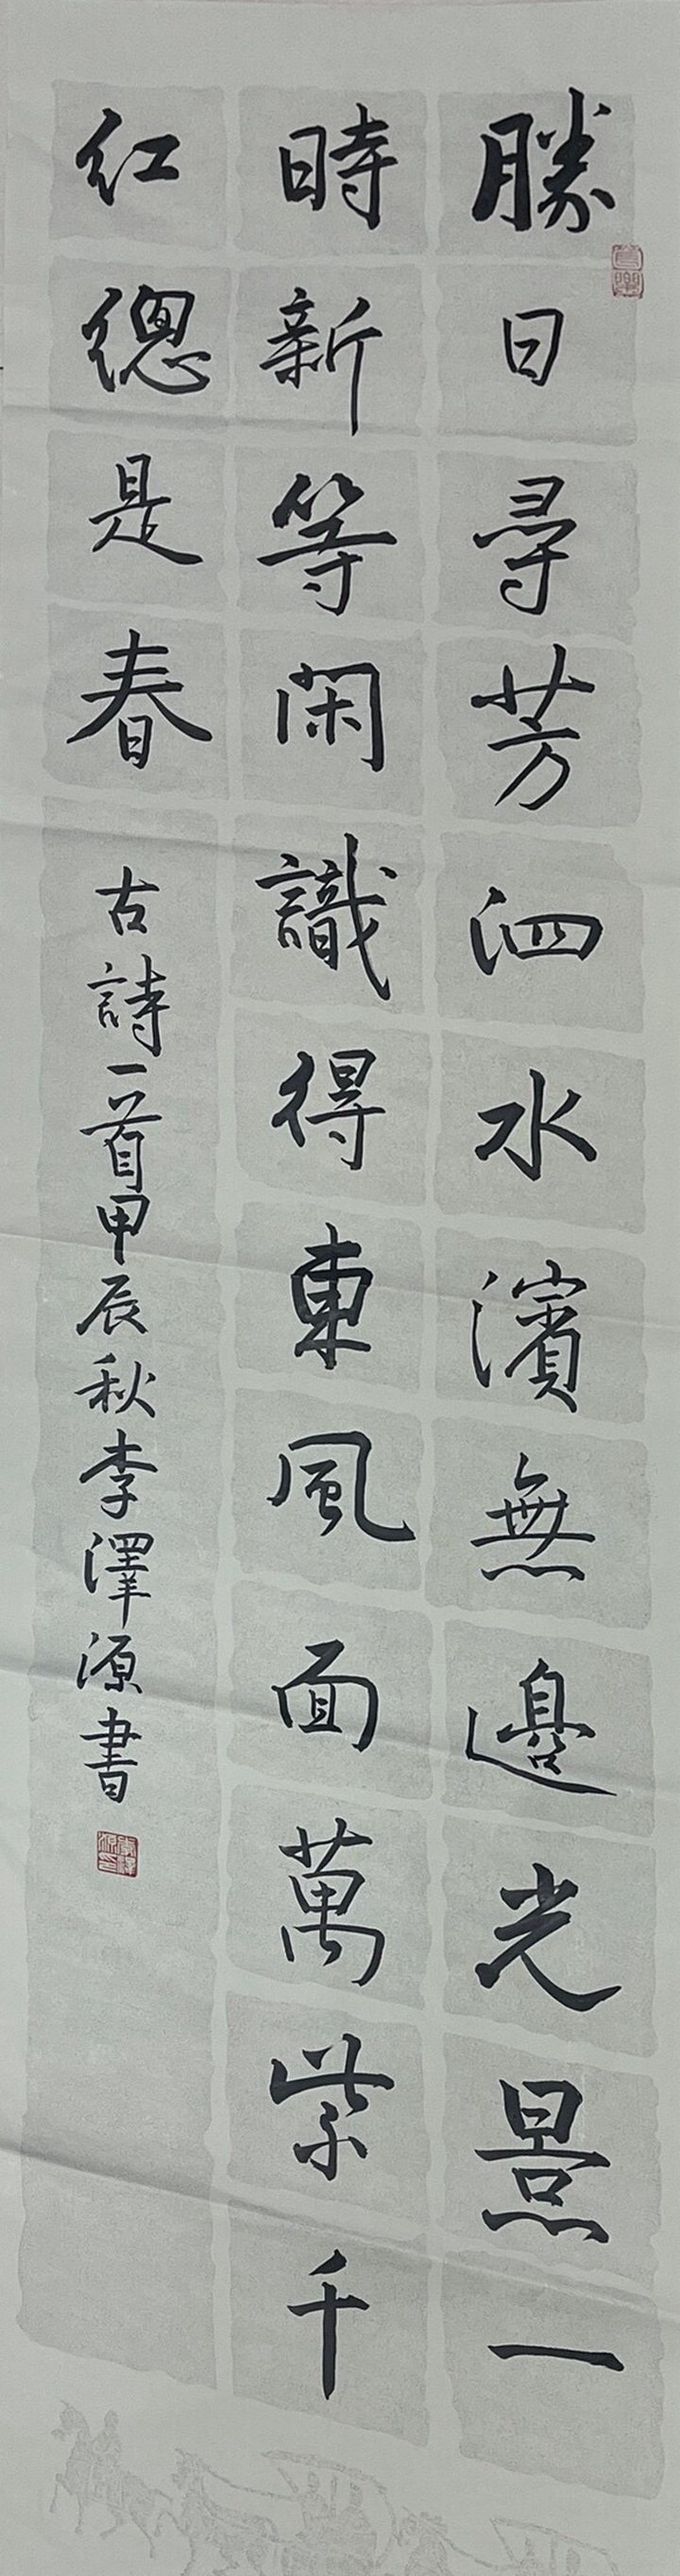 勝日尋芳泗水濱無邊光景一
時新等閑識得東風面萬紫千
紅總是春
古詩一首甲辰秋李澤源書